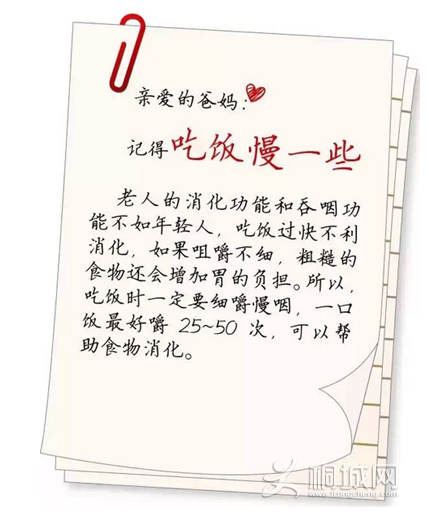 亲爱的爸妈：
记得吃饭慢一些
老人的消化功能和吞咽功
能不如年轻人，吃饭过快不利
消化，如果咀嚼不细，粗糙的
食物还会增加胃的负担。所以，
吃饭时一定要细嚼慢咽，一口
饭最好嚼 25~50 次，可以帮
助食物消化。
桐城网